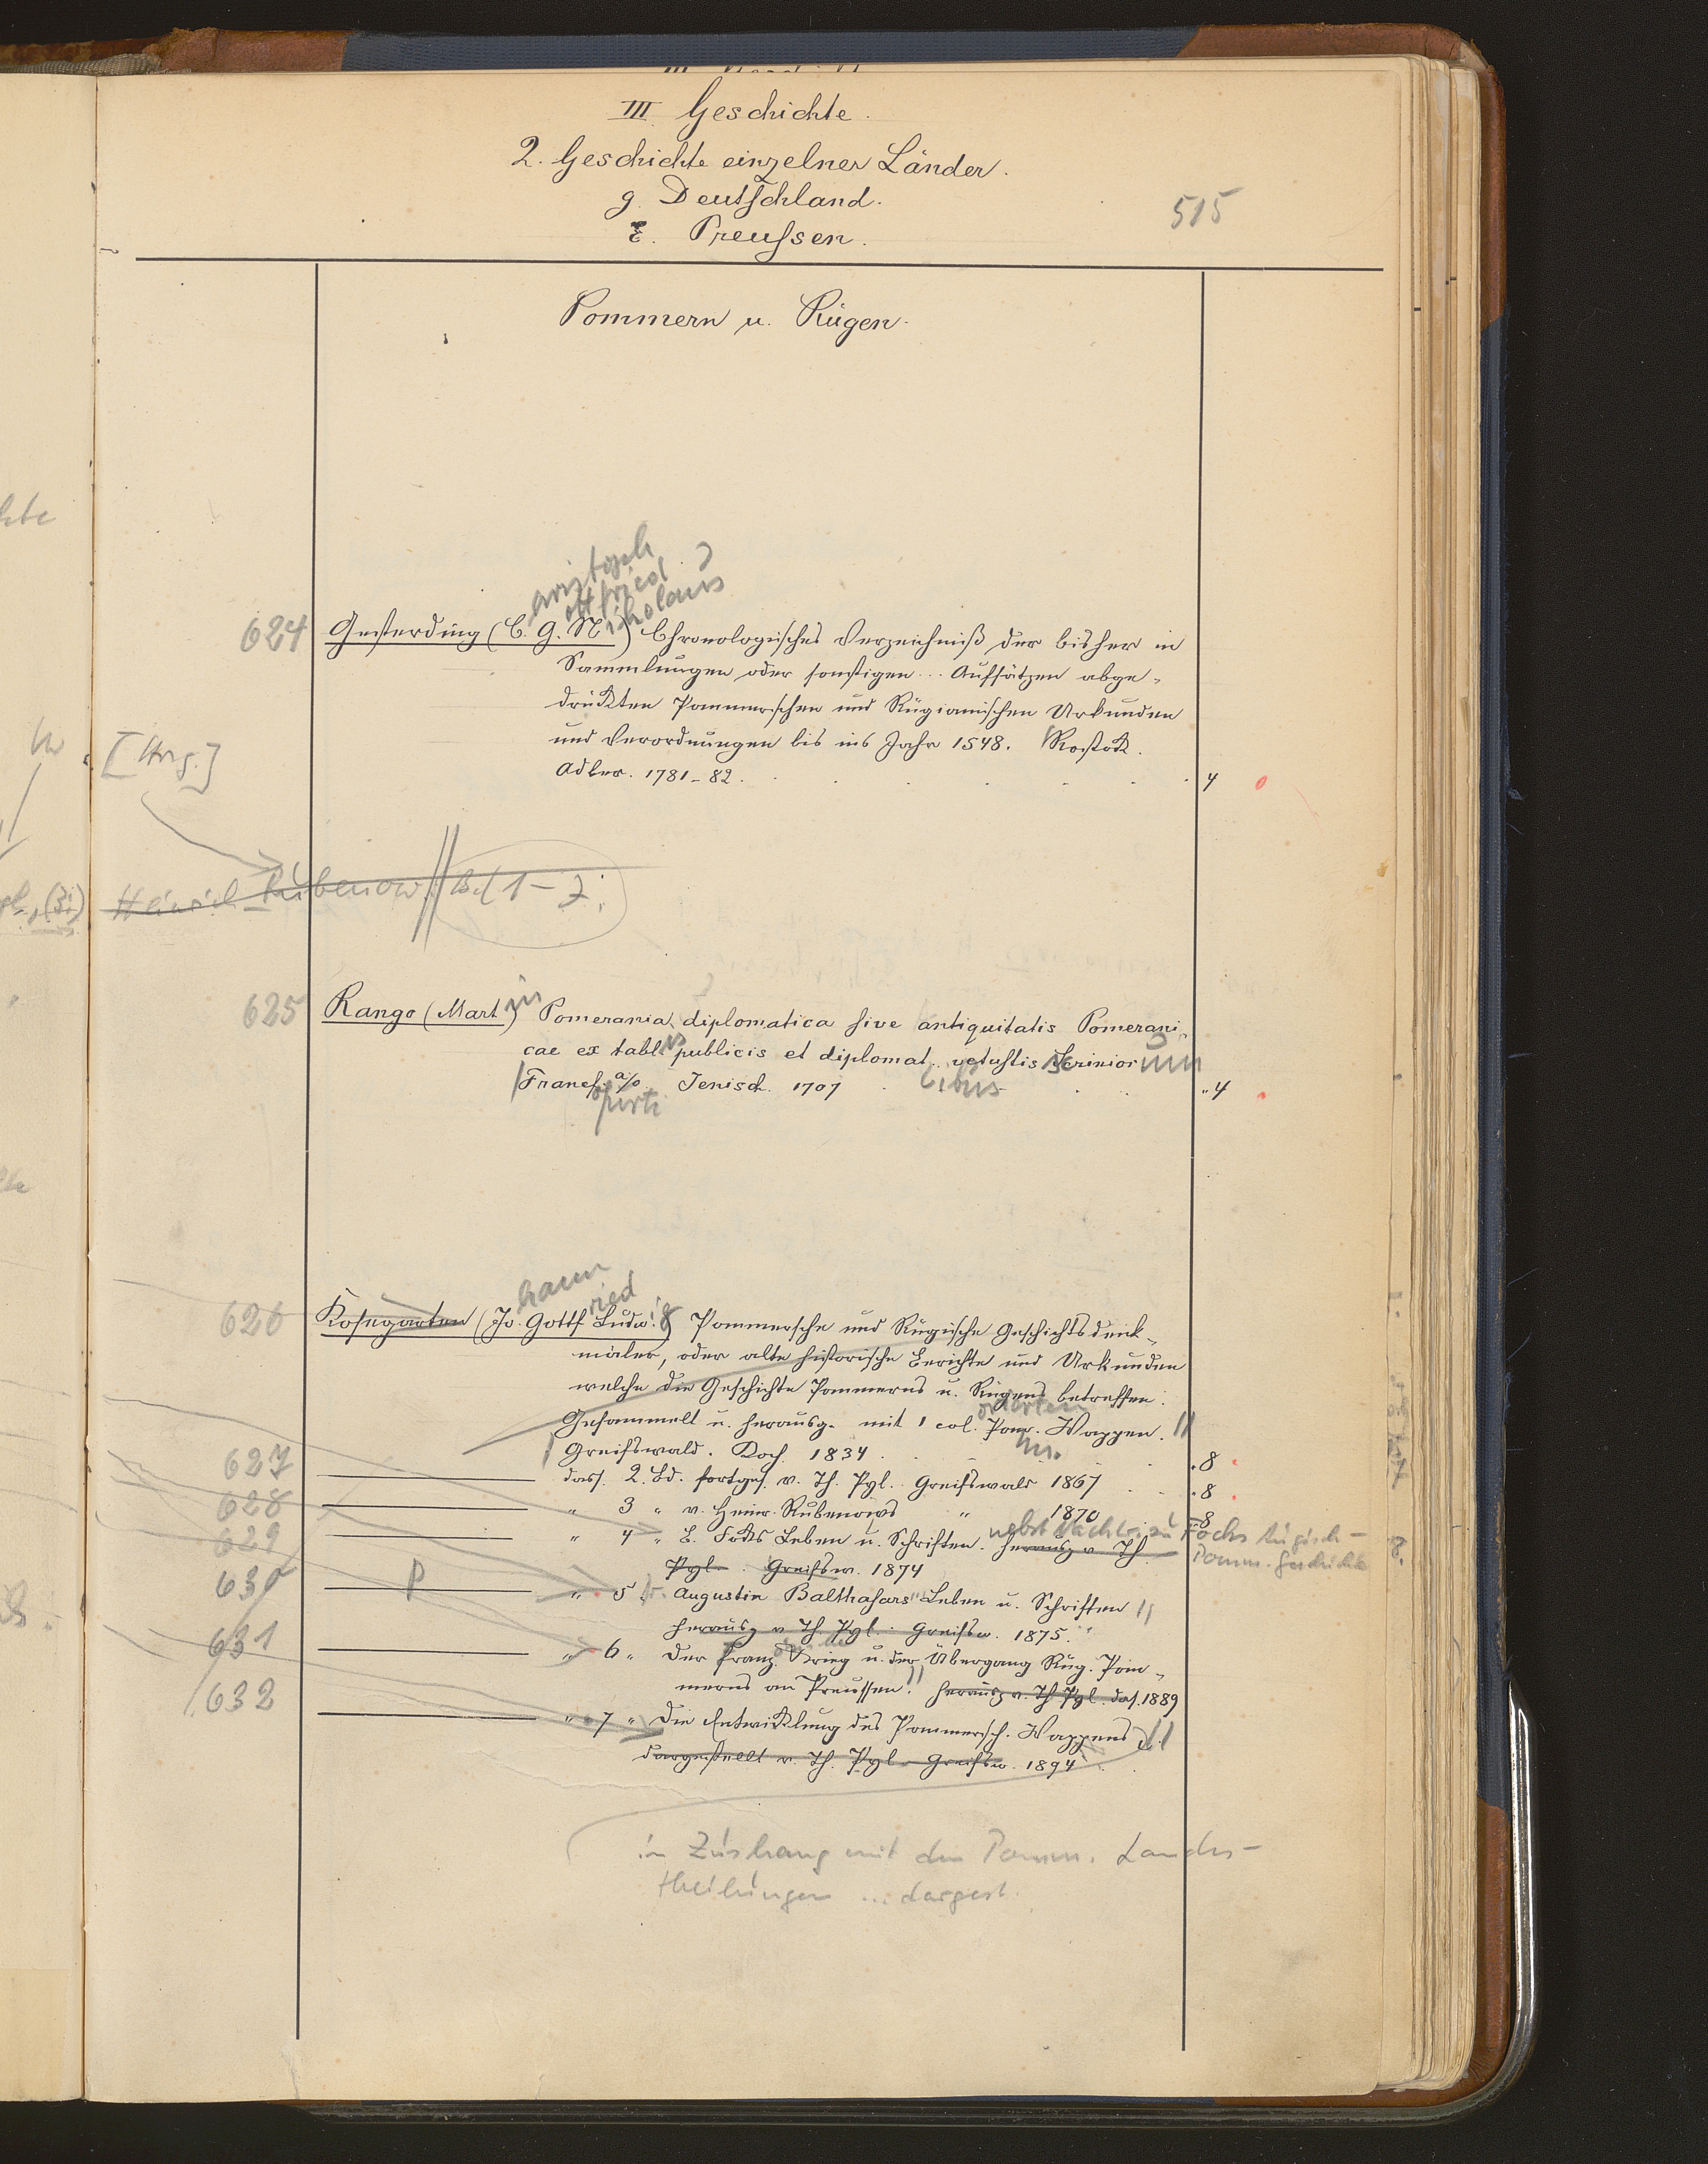 III. Geschichte.
2. Geschichte einzelner Länder.
g. Deutschland.
515
ε. Preußen.
Pommern u. Rügen.
ristoph
ottfried
ikolaus
624 Gesterding (C. G. N.) Chronologisches Verzeichniß der bisher in
Sammlungen oder sonstigen... Aufsätzen abge-
druckten Pommerschen und Rügianischen Urkunden
und Verordnungen bis ins Jahr 1548. Rostock.
Adler. 1781-82. 4
[Hrg.]
Heinrich Rubenow Bd 1-7.
625 Rango (Martin) Pomerania diplomatica sive antiquitatis Pomerani-
cae ex tablis publicis et diplomat. vetustis scriniorum
Francf. a/o Jenisch 1707 4
furti
hann
ried
626 Kosegarten (Jo. Gottf Ludwig) Pommersche und Rügische Geschichtsdenk-
mäler, oder alte historische Berichte und Urkunden
welche die Geschichte Pommerns u. Rügens betreffen.
Gesammelt u. herausg. mit 1 col. Pom. Wappen.
Greifswald. Koch 1834 8
627 dass. 2. Bd. fortges. v. Th. Pyl. Greifswald 1867 8
628 " 3 " v. Heinr. Rubenows " 1870 8
nebst Nachtr. zu Focks Rügisch-
Pomm. Geschichte
629 " 4 " E. Focks Leben u. Schriften. herausg v Th
Pyl. Greifsw. 1874
630 P " 5 Augustin Balthasars Leben u. Schriften
herausg v Th Pyl. Greifsw. 1875.
631 " 6 " Der franz. Krieg u. der Übergang Rüg. Pom-
merns an Preussen. herausg v. Th Pyl. das. 1889
632 " 7 " Die Entwicklung des Pommersch. Wappens
dargestellt v. Th. Pyl Greifsw. 1894
in Zushang mit den Pomm. Landes-
theilungen ... dargest.